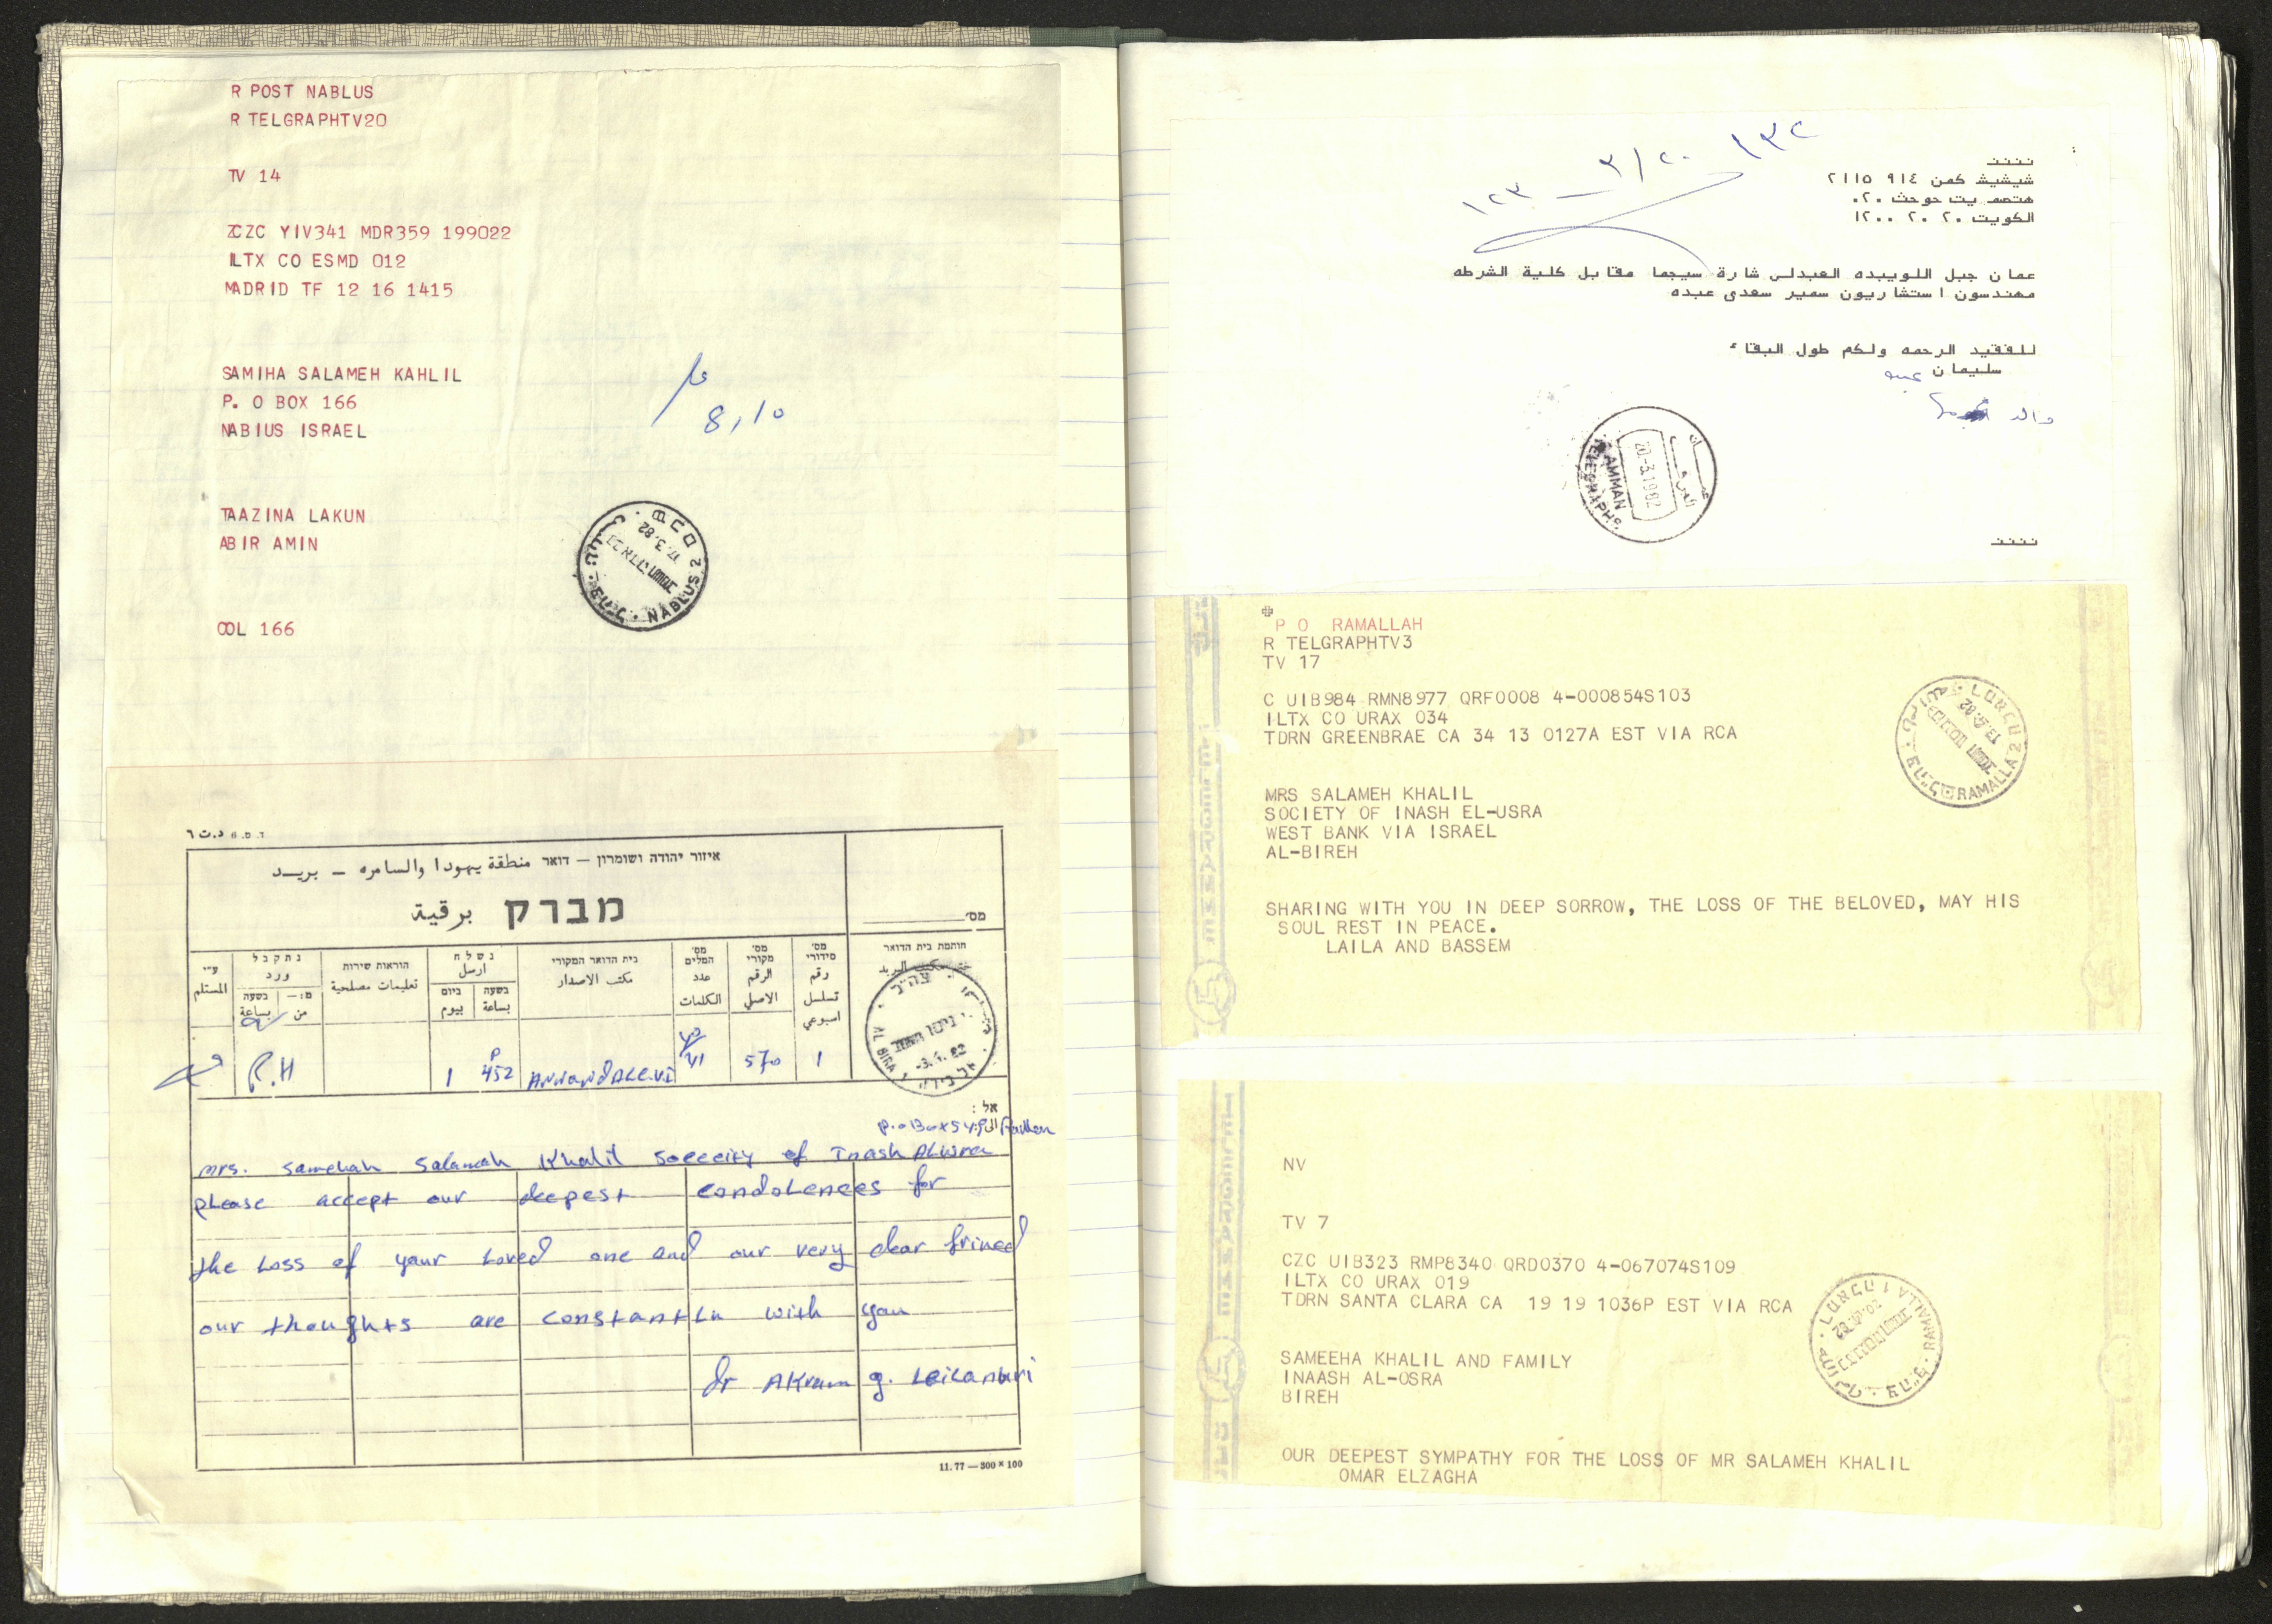 R POST NABLUS
R TELGRAPHTV20
TV 14
ZCZC YIV341 MDR359 199022
ILTX CO ESMD 012
MADRID TF 12 16 1415
SAMIHA SALAMEH KAHLIL
P. O BOX 166
NABIUS ISRAEL
8,10
TAAZINA LAKUN
ABIR AMIN
17.3.82
NABLUS 2
COL 166
ד.ס. 6 د.ت ٦
איזור יהודה ושומרון – דואר منطقة يهودا والسامره – بريد
מברק برقية
מס׳
חותמת בית הדואר
מס׳ סידורי رقم تسلسل اسبوعي
מס׳ מקורי الرقم الاصلي
מס׳ המלים عدد الكلمات
בית הדואר המקורי مكتب الاصدار
נשלח ارسل
בשעה بساعة
ביום بيوم
הוראות שירות تعليمات مصلحية
נתקבל ورد
מ:– من
בשעה بساعة
ע״י المستلم
1 570 21 ANNANDALE.VI 452 P 1 P.H
AL BIRA
אל :
mrs. samehah salamah Khalil soceeity of Inash ALusra
please accept our deepest condolences for
the Loss of your Loved one and our very dear frined
our thoughts are constantLn with you
dr AKram g.
11.77 — 300 × 100
١٣٢
٣/٢٠
١٢٣
نننن
شيشيش كمن ٩١٤ ٢١١٥
هتصم يت حوحث ٠٢٠
الكويت ٢٠ ٢٠ ١٢٠٠
عمان جبل اللويبده العبدلى شارة سيجما مقابل كلية الشرطه
مهندسون استشاريون سمير سعدى عبده
للفقيد الرحمه ولكم طول البقاء
سليمان عبده
والد
20.-3.1982
AMMAN
TELEGRAPHS
نننن
P O RAMALLAH
R TELGRAPHTV3
TV 17
C UIB984 RMN8977 QRF0008 4-000854S103
ILTX CO URAX 034
TDRN GREENBRAE CA 34 13 0127A EST VIA RCA
RAMALLA 2
MRS SALAMEH KHALIL
SOCIETY OF INASH EL-USRA
WEST BANK VIA ISRAEL
AL-BIREH
SHARING WITH YOU IN DEEP SORROW, THE LOSS OF THE BELOVED, MAY HIS
SOUL REST IN PEACE.
LAILA AND BASSEM
NV
TV 7
CZC UIB323 RMP8340 QRD0370 4-067074S109
ILTX CO URAX 019
TDRN SANTA CLARA CA 19 19 1036P EST VIA RCA
RAMALLA 1
SAMEEHA KHALIL AND FAMILY
INAASH AL-OSRA
BIREH
OUR DEEPEST SYMPATHY FOR THE LOSS OF MR SALAMEH KHALIL
OMAR ELZAGHA